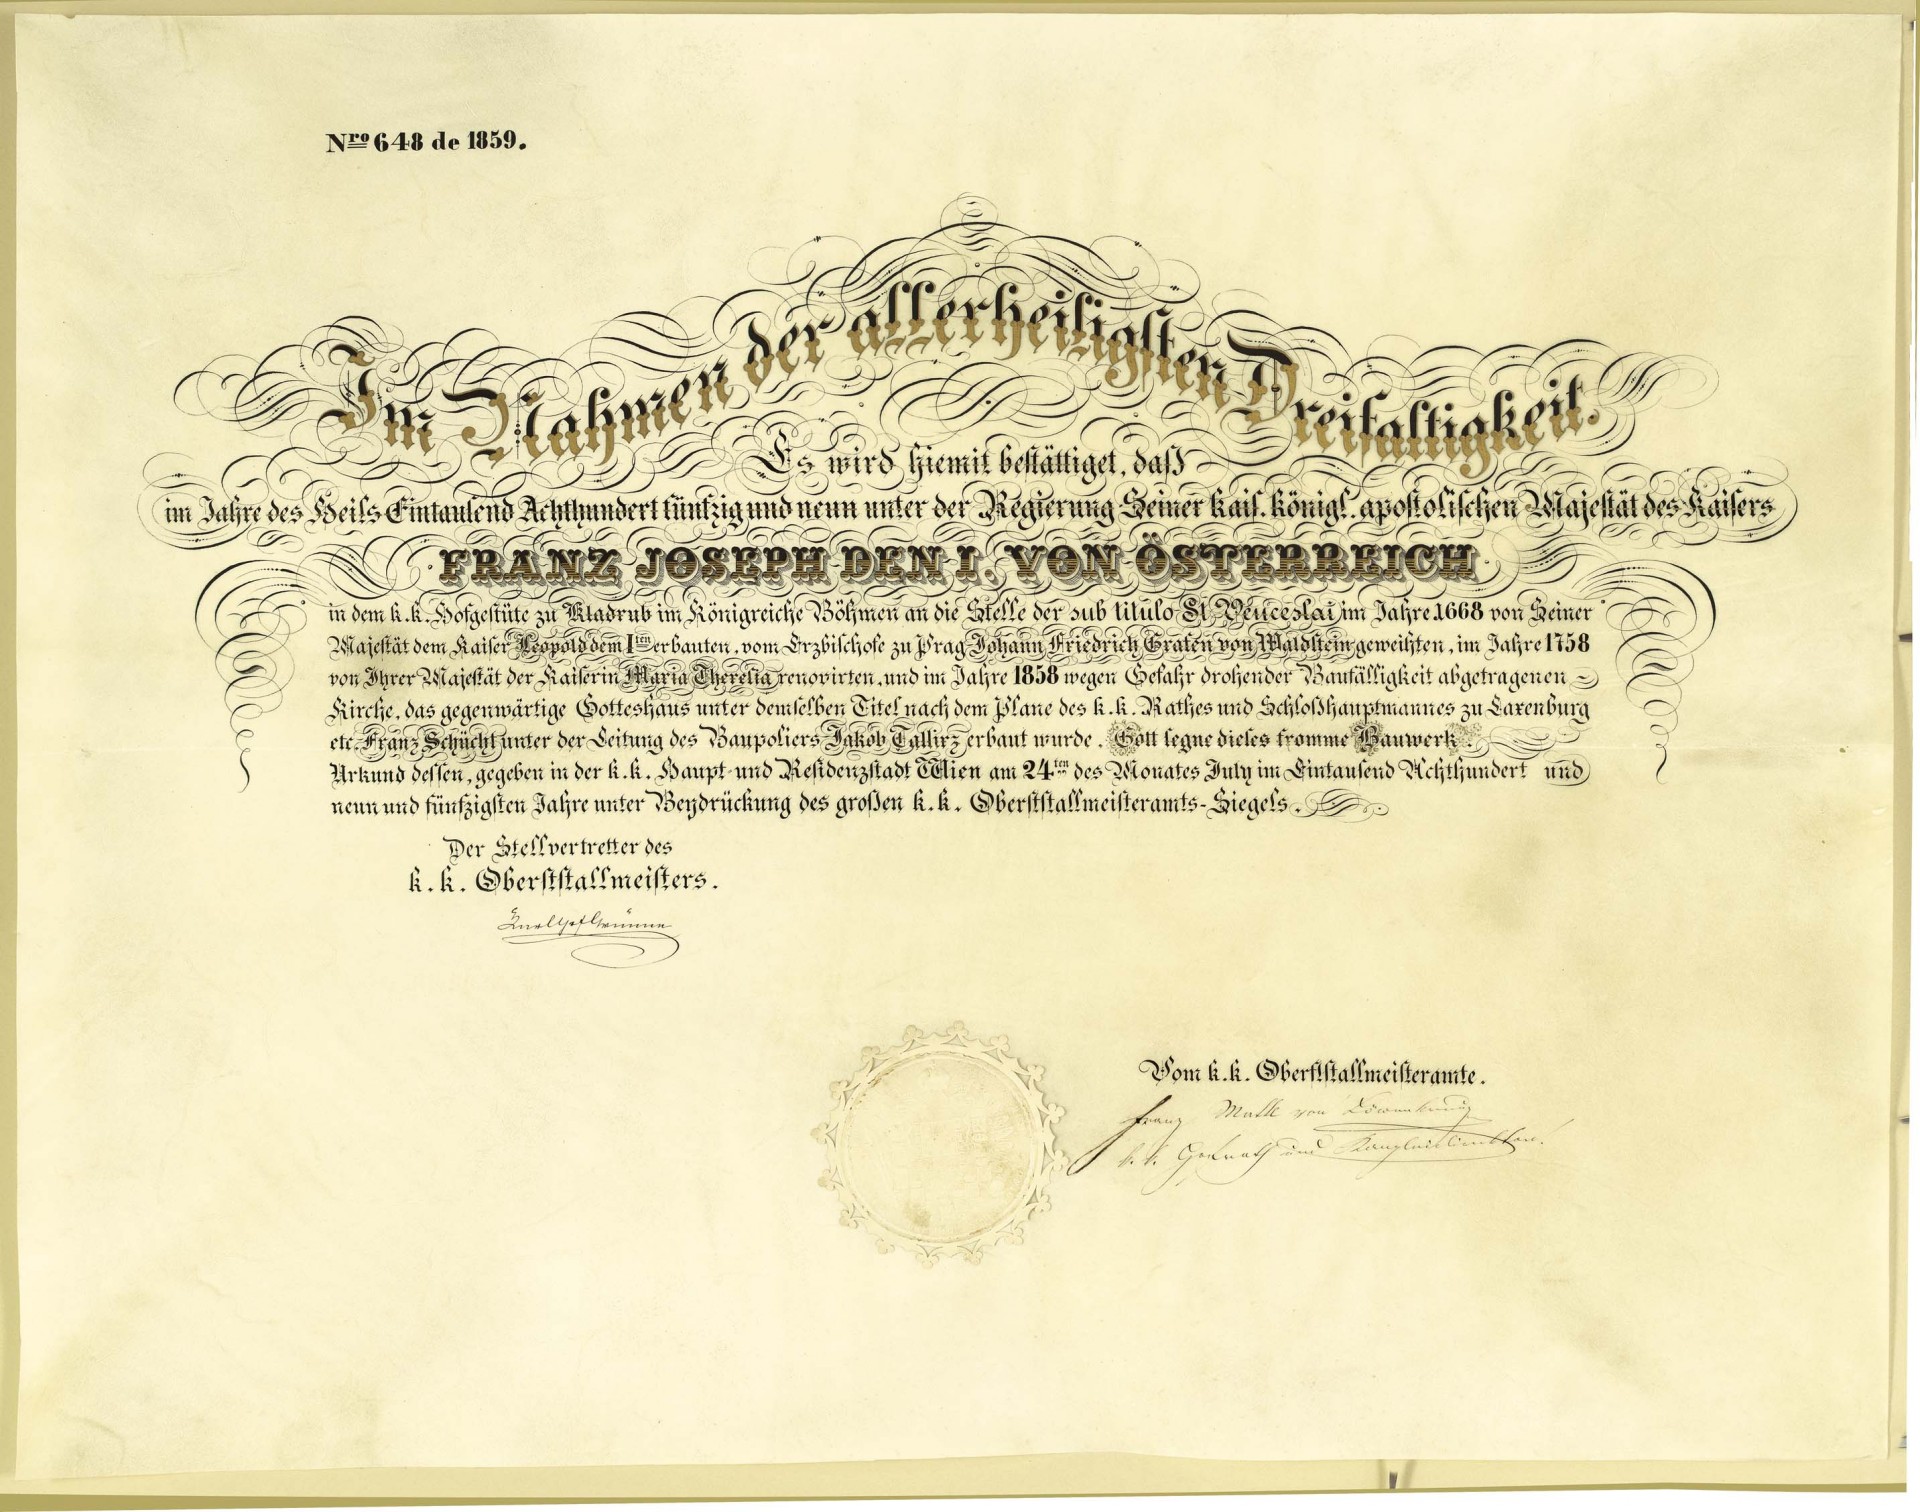 Nro 648 de 1859.
Im Nahmen der allerheiligsten Dreifaltigkeit.
Es wird hiemit bestättiget, daß
im Jahre des Heils Eintausend Achthundert fünfzig und neun unter der Regierung Seiner kais. königl. apostolischen Majestät des Kaisers
FRANZ JOSEPH DEN I. VON ÖSTERREICH
in dem k.k. Hofgestüte zu Kladrub im Königreiche Böhmen an die Stelle der sub titulo St Venceslai im Jahre 1668 von Seiner
Majestät dem Kaiser Leopold dem Iten erbauten, vom Erzbischofe zu Prag Johann Friedrich Grafen von Waldstein geweihten, im Jahre 1758
von Ihrer Majestät der Kaiserin Maria Theresia renovirten, und im Jahre 1858 wegen Gefahr drohender Baufälligkeit abgetragenen
Kirche, das gegenwärtige Gotteshaus unter demselben Titel nach dem Plane des k.k. Rathes und Schloßhauptmannes zu Laxenburg
etc Franz Schücht unter der Leitung des Baupoliers Jakob Tallirz erbaut wurde. Gott segne dieses fromme Bauwerk.
Urkund dessen, gegeben in der k.k. Haupt und Residenzstadt Wien am 24ten des Monates July im Eintausend Achthundert und
neun und fünfzigsten Jahre unter Beydrückung des großen k.k. Oberststallmeisteramts-Siegels.
Der Stellvertretter des
k.k. Oberststallmeisters.
Karl Gf Grünne
Vom k.k. Oberststallmeisteramte.
Franz von
k.k. Hofrath und